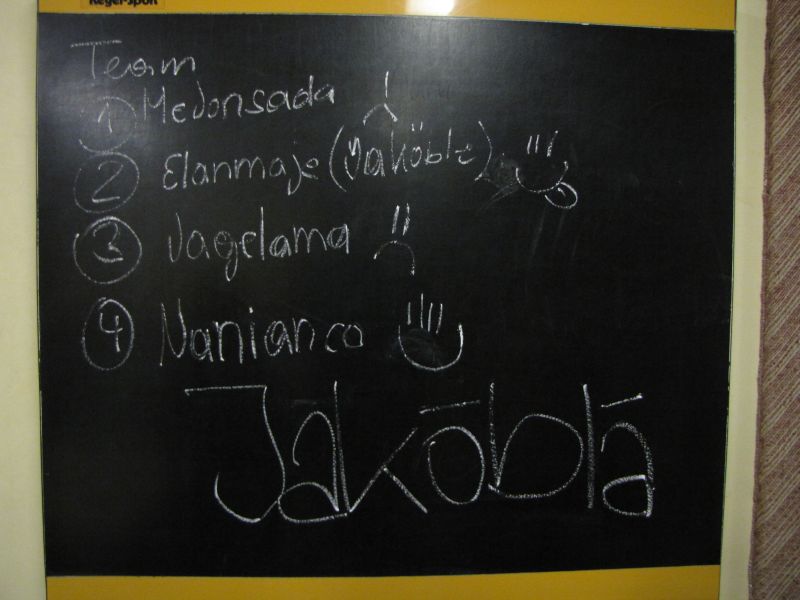 Kegel-sport
Team
1 Medonsada
2 Elanmaje (Jaköble)
3 Jagelama
4 Nanianco
Jakōblā